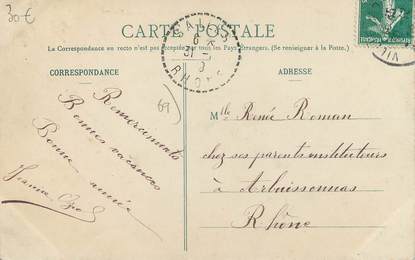 30€
CARTE POSTALE
La Correspondance au recto n'est pas acceptée par tous les Pays Étrangers. (Se renseigner à la Poste.)
CORRESPONDANCE
ADRESSE
31
RHONE
69
Remerciements
Bonnes vacances
Bonne année
Jeanne
Mlle Renée Roman
chez ses parents instituteurs
à Arbuissonnas
Rhône